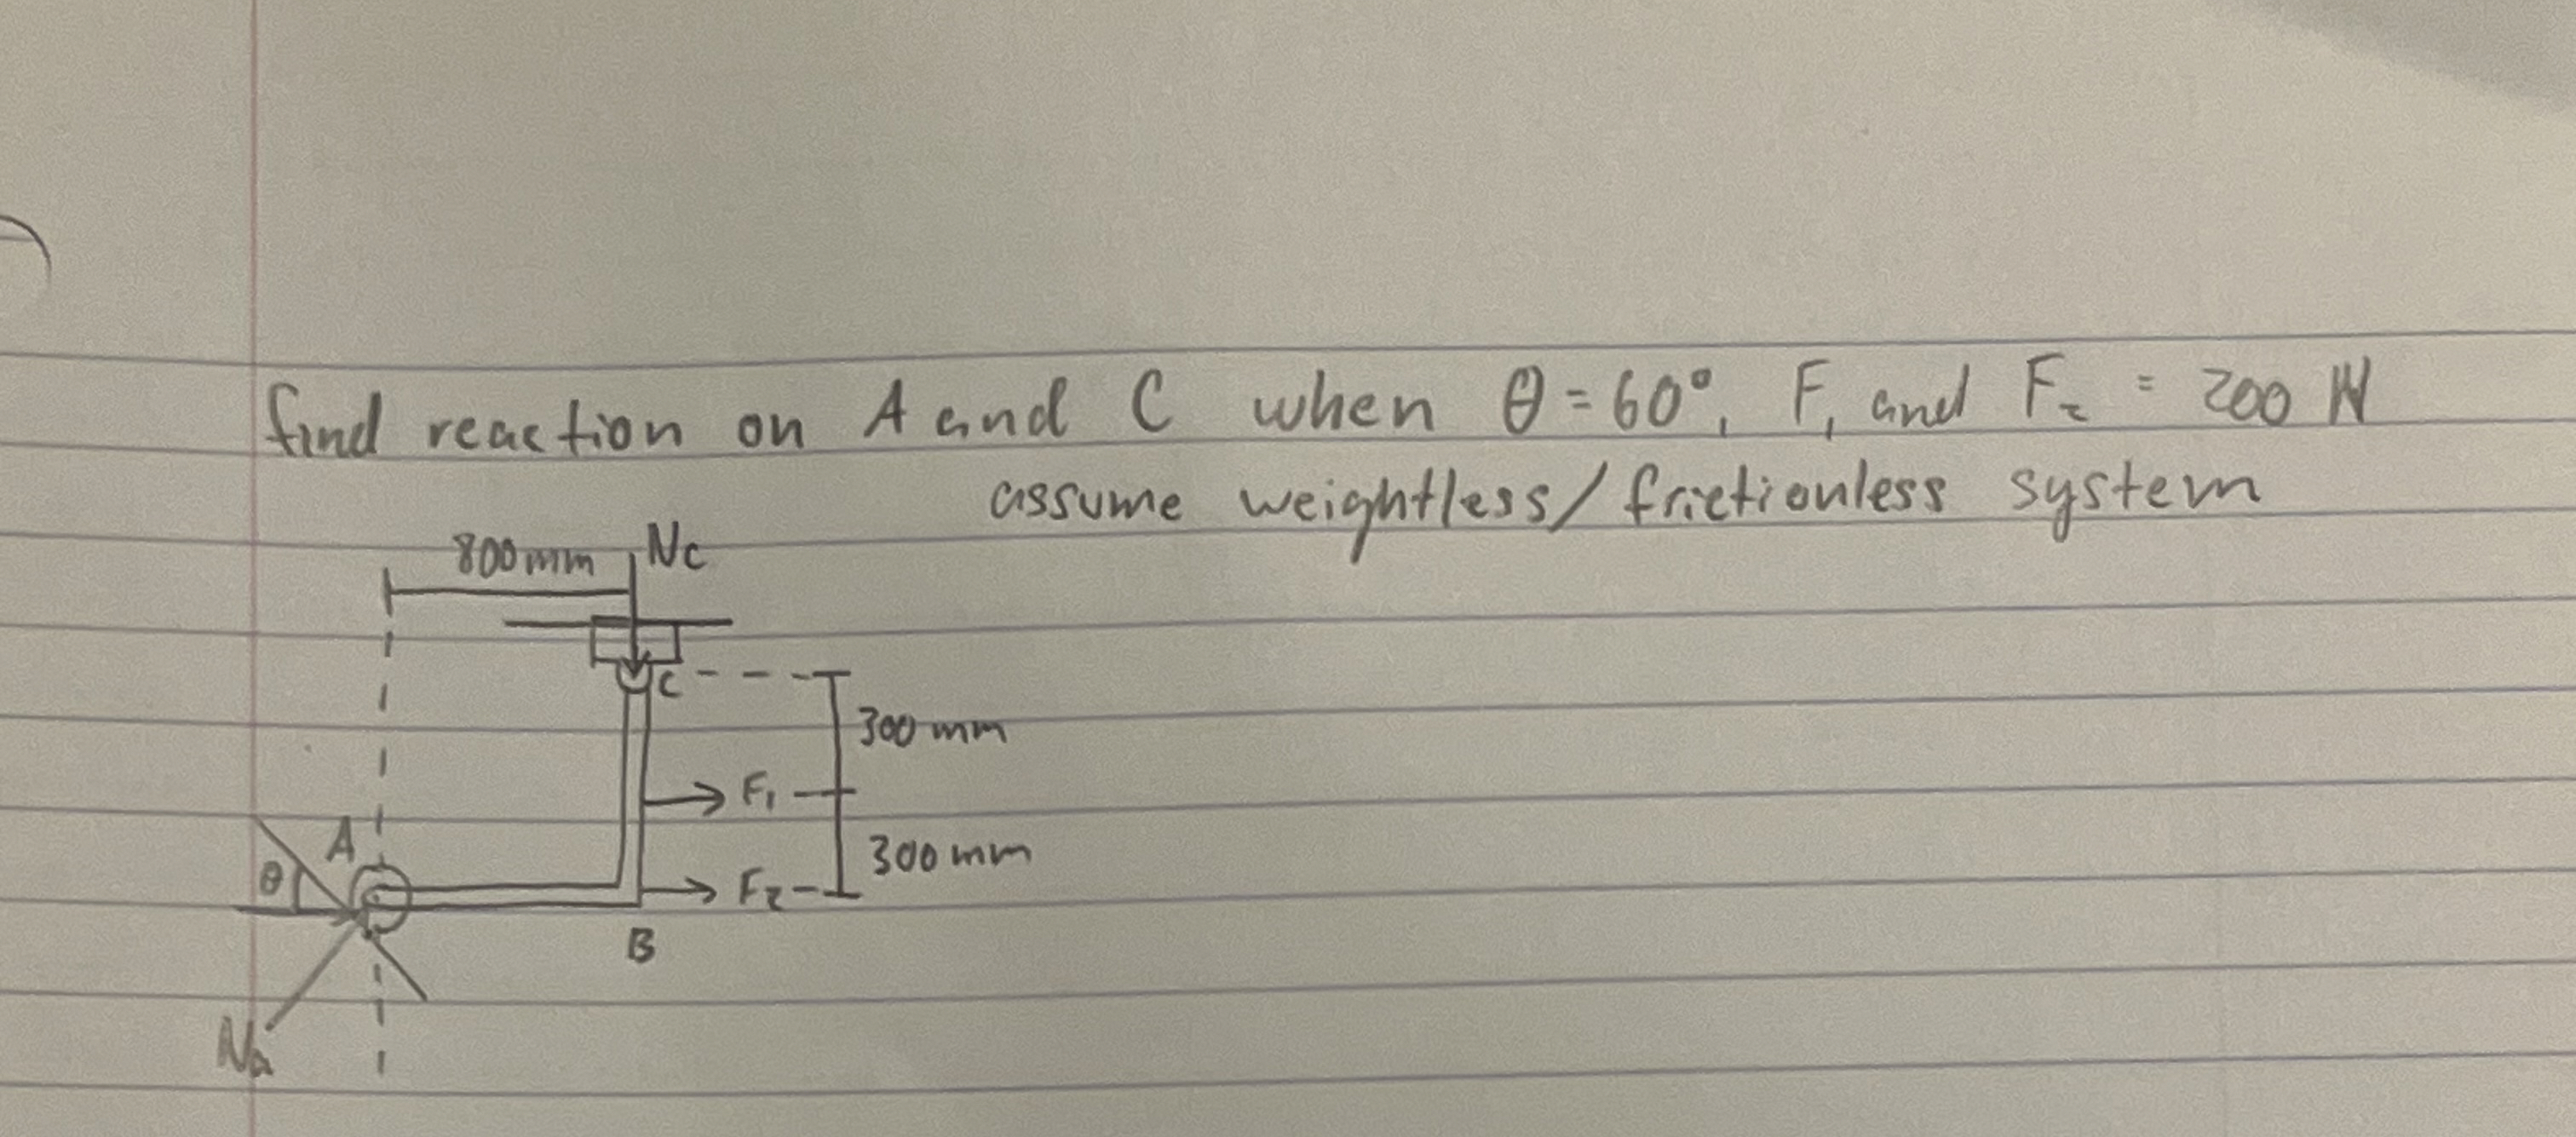 find reaction on A and C when θ = 60°, F₁ and F₂ = 200 N
assume weightless/frictionless system
800mm Nc
C
300 mm
F₁
A
θ
300 mm
F₂
B
Na